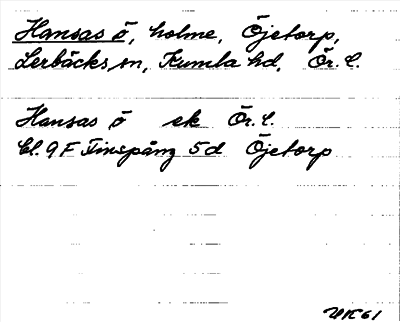 Hansas ö, holme, Öjetorp,
Lerbäcks sn, Kumla hd, Ör. l.
Hansas ö ek Ör. l.
Bl. 9 F Finspång 5d Öjetorp
61